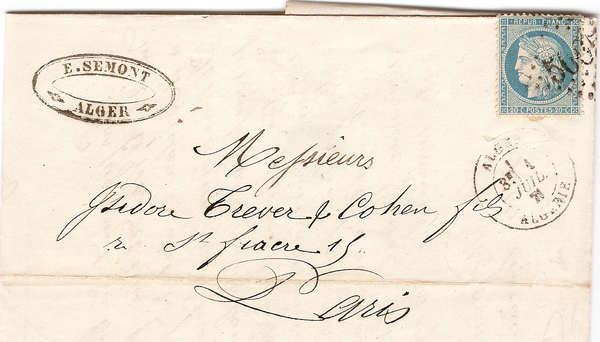 E. SEMONT
ALGER
REPUB. FRANC.
20 C. POSTES 20 C.
5005
ALGER
3E
JUIL.
ALGERIE
Messieurs
Isidore Trever & Cohen fils
r. St fiacre 15
Paris